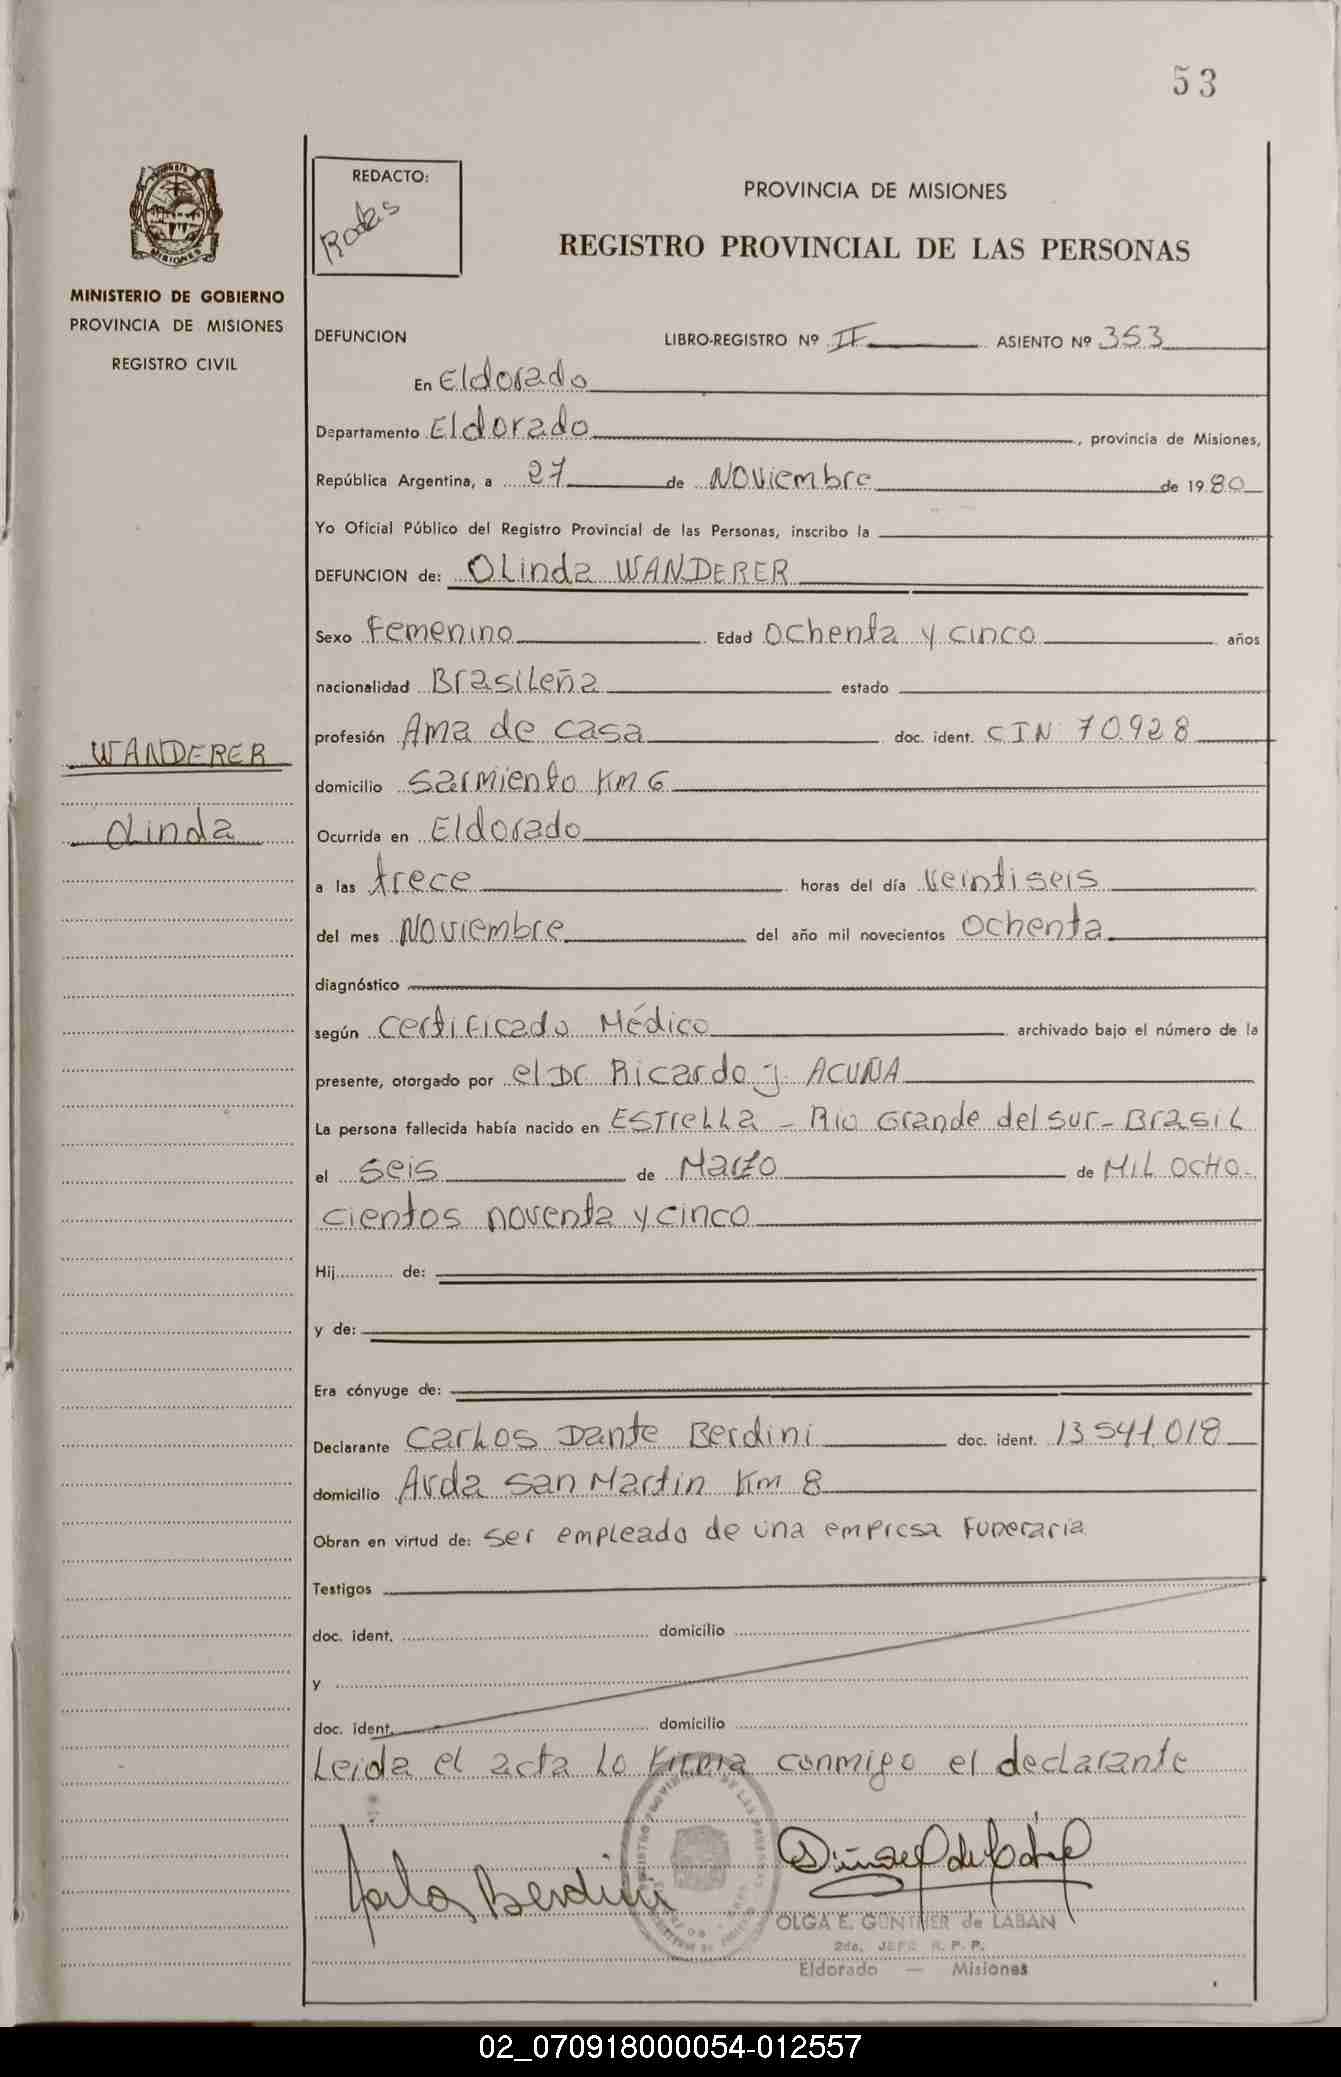 53
REDACTO:
Rodas
PROVINCIA DE MISIONES
REGISTRO PROVINCIAL DE LAS PERSONAS
MINISTERIO DE GOBIERNO
PROVINCIA DE MISIONES
REGISTRO CIVIL
DEFUNCION LIBRO-REGISTRO Nº II ASIENTO Nº 353
En Eldorado
Departamento Eldorado, provincia de Misiones,
República Argentina, a 27 de Noviembre de 1980
Yo Oficial Público del Registro Provincial de las Personas, inscribo la
DEFUNCION de: OLinda WANDERER
Sexo Femenino Edad Ochenta y cinco años
nacionalidad Brasileña estado
profesión Ama de casa doc. ident. CIN 70928
WANDERER
domicilio Sarmiento Km 6
OLinda
Ocurrida en Eldorado
a las trece horas del día Veintiseis
del mes Noviembre del año mil novecientos Ochenta
diagnóstico
según Certificado Médico archivado bajo el número de la
presente, otorgado por el Dr Ricardo J. ACUÑA
La persona fallecida había nacido en ESTrella - Rio Grande del sur - Brasil
el seis de Marzo de MIL OCHO
cientos noventa y cinco
Hij............ de:
y de:
Era cónyuge de:
Declarante Carlos Dante Berdini doc. ident. 13541018
domicilio Avda San Martin Km 8
Obran en virtud de: Ser empleado de una empresa Funeraria
Testigos
doc. ident. domicilio
y
doc. ident. domicilio
Leida el acta lo Firma conmigo el declarante
Carlos Berdini
OLGA E. GUNTHER de LABAN
2do. JEFE R. P. P.
Eldorado — Misiones
02_070918000054-012557